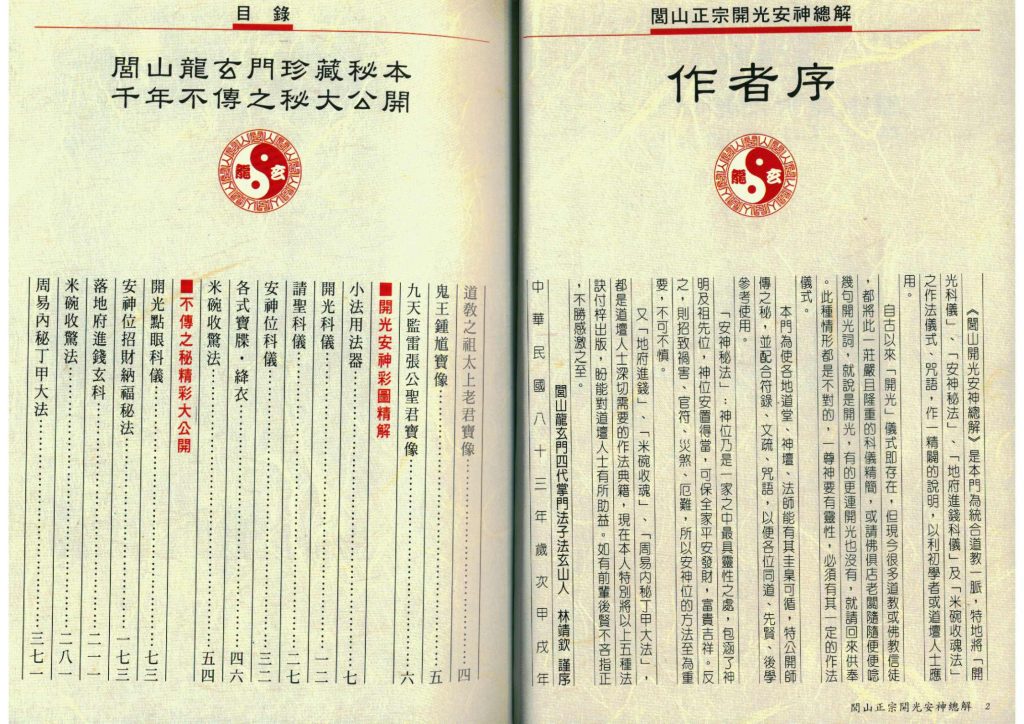 閭山正宗開光安神總解
作者序
龍玄
《閭山開光安神總解》是本門為統合道教一脈，特地將「開
光科儀」、「安神秘法」、「地府進錢科儀」及「米碗收魂法」
之作法儀式、咒語，作一精闢的說明，以利初學者或道壇人士應
用。
自古以來「開光」儀式即存在，但現今很多道教或佛教信徒
，都將此一莊嚴且隆重的科儀精簡，或請佛俱店老闆隨隨便便唸
幾句開光詞，就說是開光，有的更連開光也沒有，就請回來供奉
。此種情形都是不對的，一尊神要有靈性，必須有其一定的作法
儀式。
本門為使各地道堂、神壇、法師能有其圭臬可循，特公開師
傳之秘，並配合符錄、文疏、咒語，以便各位同道、先賢、後學
參考使用。
「安神秘法」：神位乃是一家之中最具靈性之處，包涵了神
明及祖先位，神位安置得當，可保全家平安發財，富貴吉祥。反
之，則招致禍害、官符、災煞、厄難，所以安神位的方法至為重
要，不可不慎。
又「地府進錢」、「米碗收魂」、「周易內秘丁甲大法」，
都是道壇人士深切需要的作法典籍，現在本人特別將以上五種法
訣付梓出版，盼能對道壇人士有所助益。如有前輩後賢不吝指正
，不勝感激之至。
閭山龍玄門四代掌門法子法玄山人　林靖欽　謹序
中華民國八十三年歲次甲戌年
閭山正宗開光安神總解　2
目錄
閭山龍玄門珍藏秘本
千年不傳之秘大公開
龍玄
道教之祖太上老君寶像…………四
鬼王鍾馗寶像…………五
九天監雷張公聖君寶像…………六
■開光安神彩圖精解
小法用法器…………七
開光科儀…………一二
請聖科儀…………二七
安神位科儀…………三二
各式寶牒・絳衣…………四六
米碗收驚法…………五四
■不傳之秘精彩大公開
開光點眼科儀…………七三
安神位招財納福秘法…………一七三
落地府進錢玄科…………二一一
米碗收驚法…………二八一
周易內秘丁甲大法…………三七一